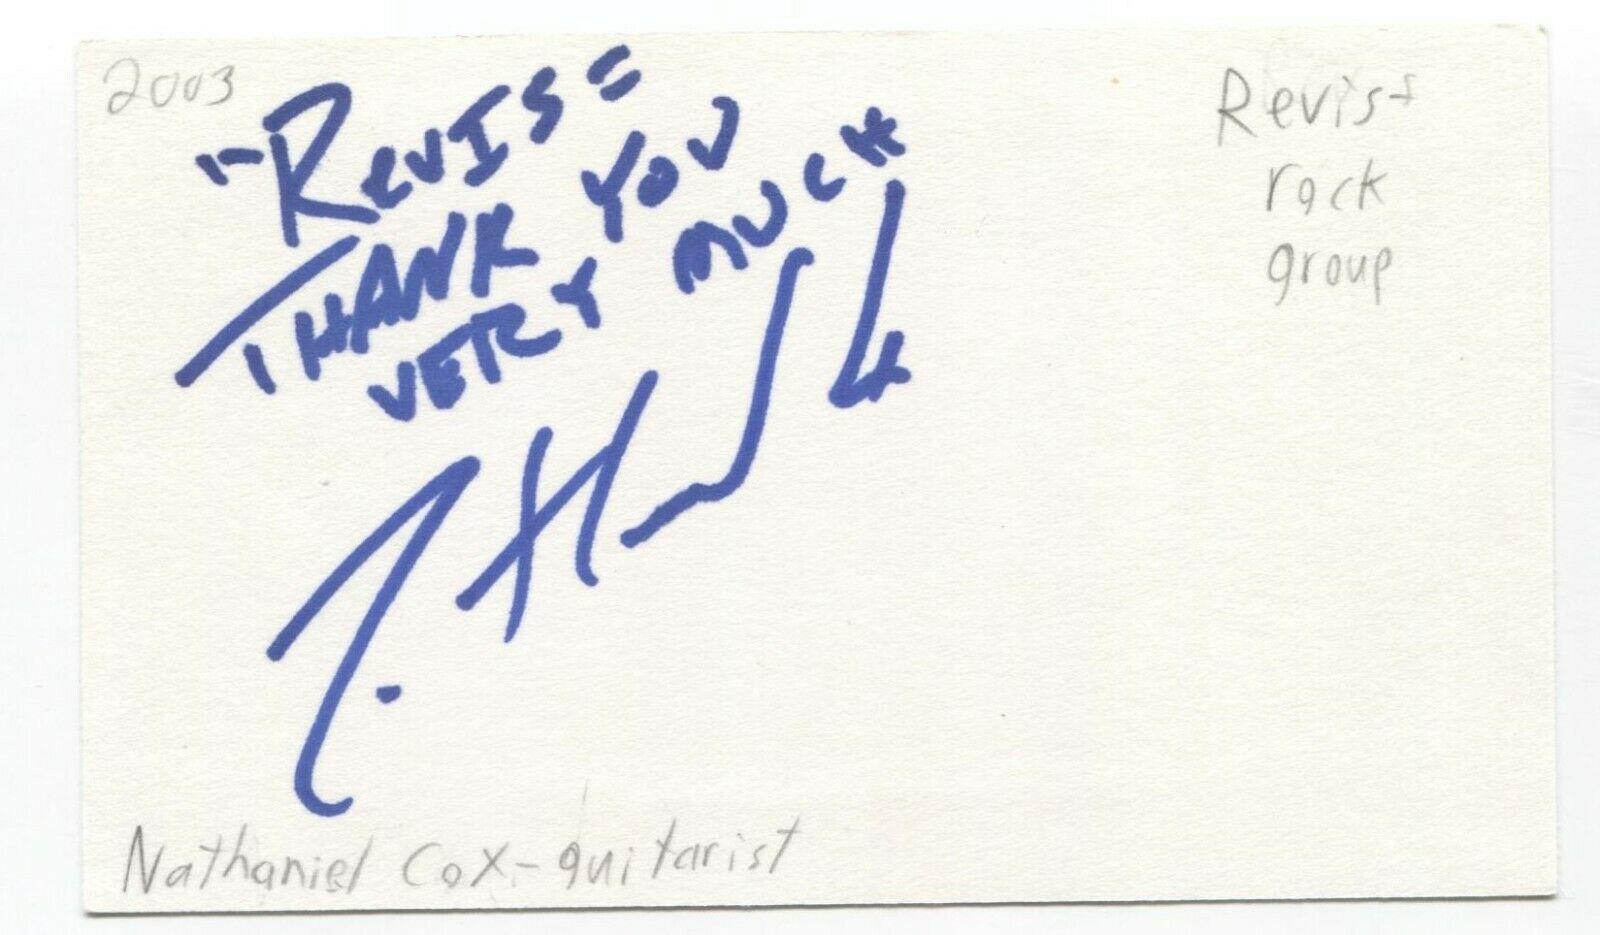 2003
"REVIS"
THANK YOU
VERY MUCH
Revis-
rock
group
Nathaniel Cox-guitarist